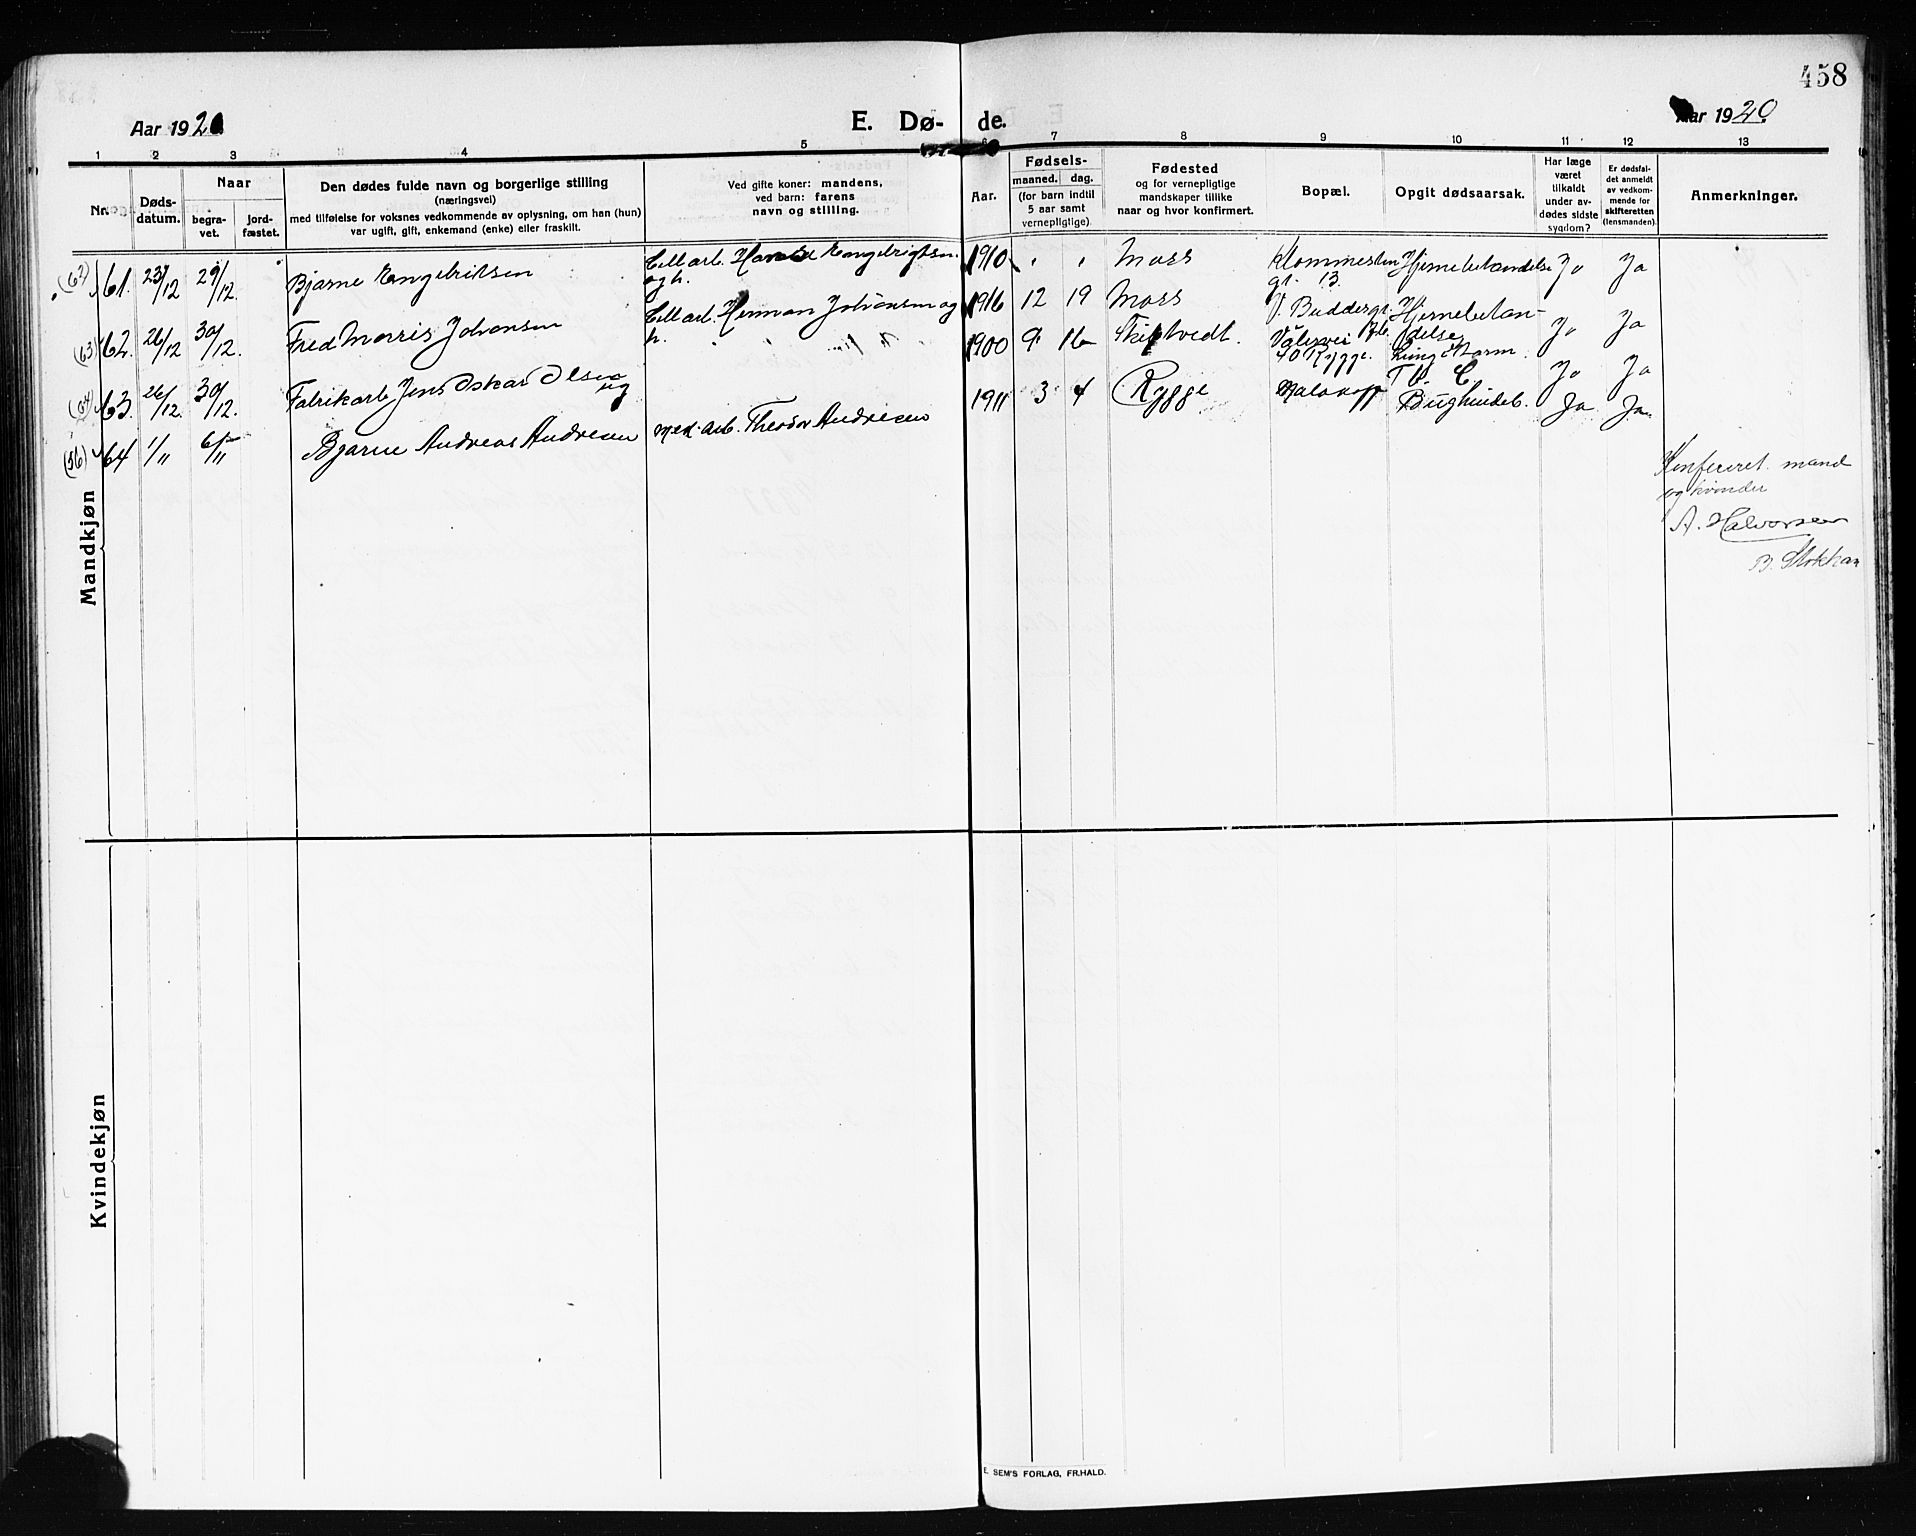 458
Aar 1920
E. Dø-
de.
Aar 1920
1 2 3 4 5 6 7 8 9 10 11 12 13
Nr.
Døds-
datum.
Naar
begra-
vet.
jord-
fæstet.
Den dødes fulde navn og borgerlige stilling
(næringsvei)
med tilføielse for voksnes vedkommende av oplysning, om han (hun)
var ugift, gift, enkemand (enke) eller fraskilt.
Ved gifte koner: mandens,
ved barn: farens
navn og stilling.
Aar.
Fødsels-
maaned. dag.
(for barn indtil
5 aar samt
vernepligtige).
Fødested
og for vernepligtige
mandskaper tillike
naar og hvor konfirmert.
Bopæl.
Opgit dødsaarsak.
Har læge
været
tilkaldt
under av-
dødes sidste
sygdom?
Er dødsfal-
det anmeldt
av vedkom-
mende for
skifteretten
(lensmanden).
Anmerkninger.
Mandkjøn
(62) 61. 23/12 29/12. Bjarne Engelriktsen
Cell arb. Engelrigtsen.
og h.
1910 " " Moss
gt. 13.
Hjernebetændelse Ja Ja
(63) 62. 26/12 30/12. Fred Morris Johansen
Cell arb. Herman Johansen og
h.
1916 12 19 Moss
Hjernebetæn-
delse Ja Ja
(64) 63. 26/12. 30/12. Fabrikarb Jens Oskar Olsen
ug
1900 9 16 Skiptvedt.
Vålervei
40 Rygge.
Ja Ja
(56) 64 1/11 6/11 Bjarne Andreas Andresen
Theodor Andresen
1911 3 4 Rygge
Malakoff
Bughindeb. Ja Ja
Konfereret mænd
og kvinder
A. Halvorsen
Kvindekjøn
E. SEM'S FORLAG, FR.HALD.